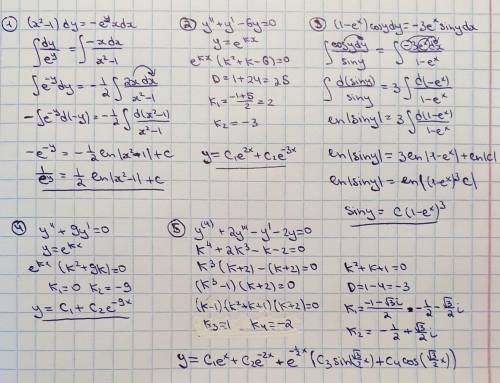 ① (x²-1)dy = -eʸxdx
∫ dy/eʸ = ∫ -xdx/(x²-1)
∫e⁻ʸdy = -1/2 ∫ 2xdx/(x²-1)
-∫e⁻ʸd(-y) = -1/2 ∫ d(x²-1)/(x²-1)
-e⁻ʸ = -1/2 ln|x²-1| + C
1/eʸ = 1/2 ln|x²-1| + C
② y'' + y' - 6y = 0
y = eᵏˣ
eᵏˣ(k²+k-6) = 0
D = 1+24 = 25
k₁ = (-1+5)/2 = 2
k₂ = -3
y = C₁e²ˣ + C₂e⁻³ˣ
③ (1-eˣ)cosydy = -3eˣsinydx
∫ cosydy/siny = ∫ -3eˣdx/(1-eˣ)
∫ d(siny)/siny = 3∫ d(-eˣ)/(1-eˣ)
ln|siny| = 3∫ d(1-eˣ)/(1-eˣ)
ln|siny| = 3ln|1-eˣ| + ln|C|
ln|siny| = ln|(1-eˣ)³C|
siny = C(1-eˣ)³
④ y'' + 9y' = 0
y = eᵏˣ
eᵏˣ(k²+9k) = 0
k₁ = 0 k₂ = -9
y = C₁ + C₂e⁻⁹ˣ
⑤ y⁽⁴⁾ + 2y''' - y' - 2y = 0
k⁴ + 2k³ - k - 2 = 0
k³(k+2) - (k+2) = 0
(k³-1)(k+2) = 0
(k-1)(k²+k+1)(k+2) = 0
k₃ = 1 k₄ = -2
k² + k + 1 = 0
D = 1-4 = -3
k₁ = (-1-√3i)/2 = -1/2 - √3/2 i
k₂ = -1/2 + √3/2 i
y = C₁eˣ + C₂e⁻²ˣ + e^(-1/2 x)(C₃sin(√3/2 x) + C₄cos(√3/2 x))